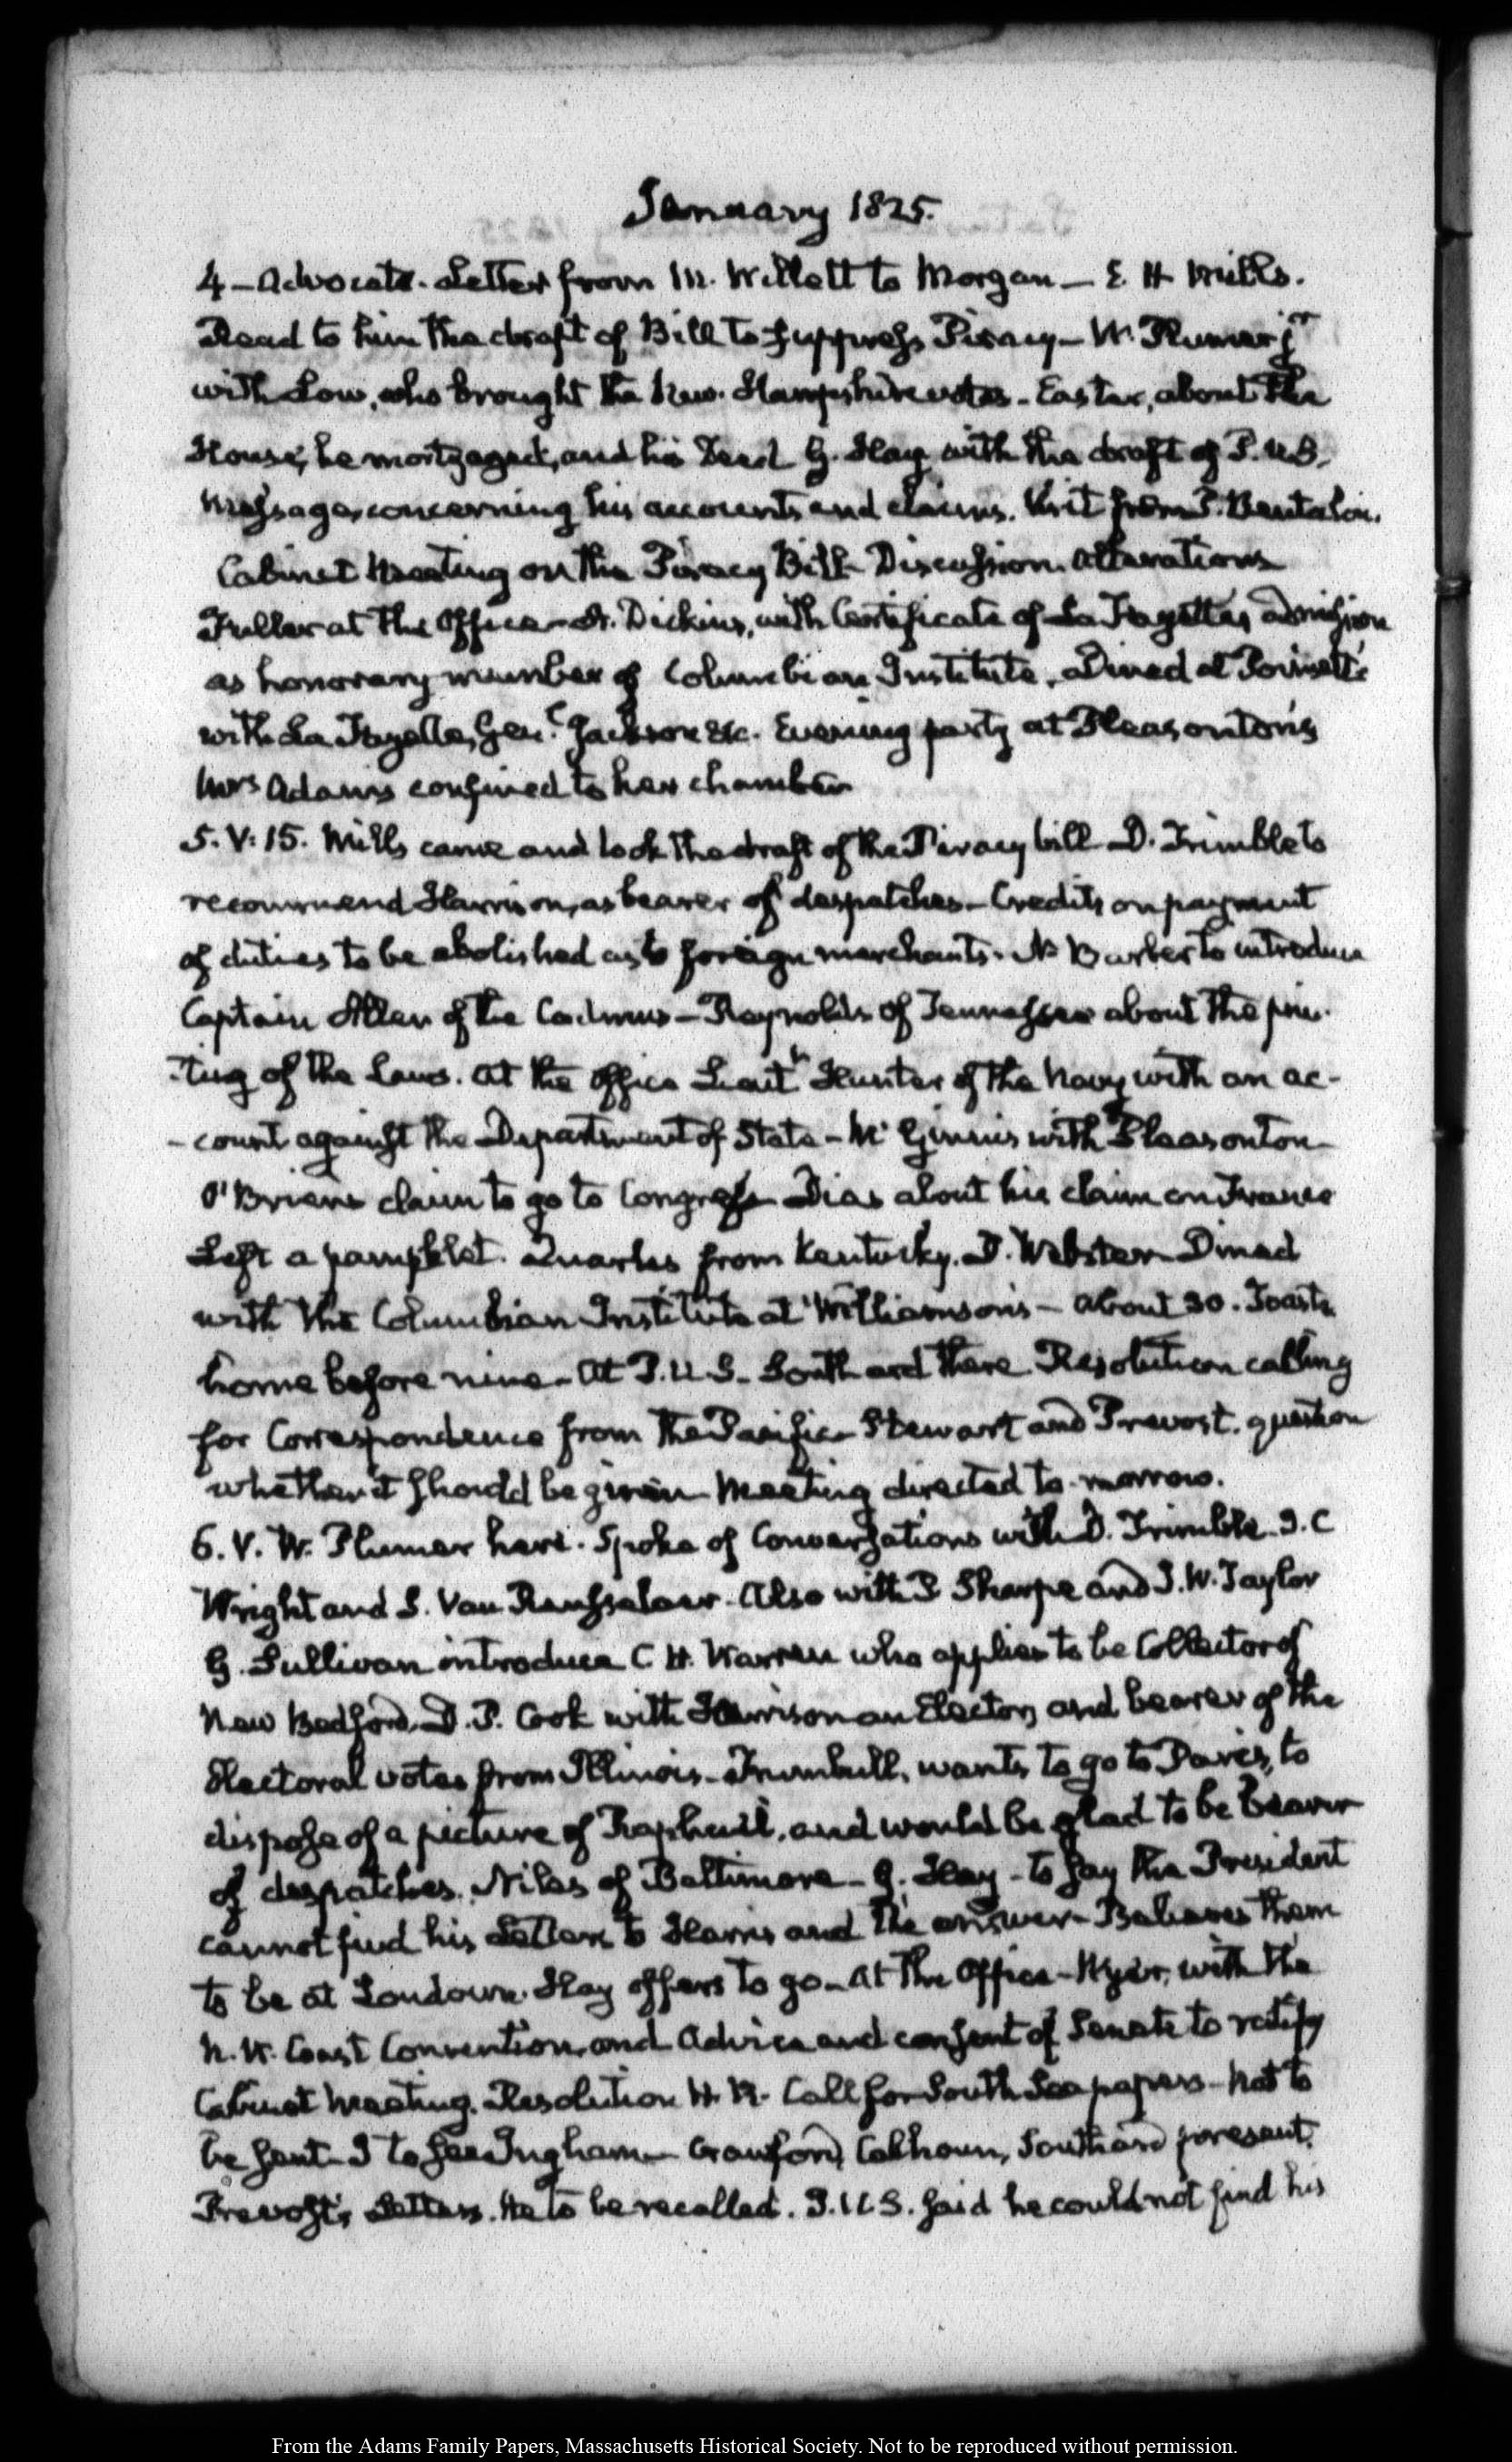 January 1825.
4 – Advocate. Letter from M. Willett to Morgan – E. H Mills.
Read to him the draft of Bill to suppress Piracy – W. Plumer jr
with Low, who brought the New-Hampshire votes – Easter, about the
House, he mortgaged, and his Deed G. Hay with the draft of P.U.S.
Message, concerning his accounts and claims. Visit from P. Bentalou.
Cabinet Meeting on the Piracy Bill – Discussion. Alterations
Fuller at the Office – A. Dickins, with Certificate of La Fayette's admission
as honorary member of Columbian Institute. Dined at Poinsett's
with La Fayette, Genl. Jackson &c. Evening party at Pleasonton's
Mrs Adams confined to her chamber
5. V: 15. Mills came and took the draft of the Piracy bill – D. Trimble to
recommend Harrison, as bearer of despatches – Credits on payment
of duties to be abolished as to foreign merchants. N Barber to introduce
Captain Allen of the Cadmus – Reynolds of Tennessee about the prin-
-ting of the Laws. At the Office Lieutt Hunter of the Navy with an ac-
-count against the Department of State – McGinnis with Pleasonton
O'Briens claim to go to Congress Dias about his claim on France
Left a pamphlet. Quarles from Kentucky. D. Webster – Dined
with the Columbian Institute at Williamson's – about 30. Toasts
home before nine – At P.U.S. Southard there Resolution calling
for Correspondence from the Pacific – Stewart and Prevost. question
whether it should be given Meeting directed to-morrow.
6. V. W. Plumer here. Spoke of Conversations with D. Trimble. J. C
Wright and S. Van Rensselaer. Also with P Sharpe and J. W. Taylor
G. Sullivan introduces C H. Warren who applies to be Collector of
New Bedford. D. P. Cook with Harrison an Elector, and bearer of the
Electoral votes from Illinois – Trumbull, wants to go to Paris, to
dispose of a picture of Raphael, and would be glad to be bearer
of despatches. Niles of Baltimore – G. Hay – to say the President
cannot find his Letters to Harris and the answer – Believes them
to be at Loudoun. Hay offers to go – At the Office – Wyer, with the
N. W. Coast Convention, and Advice and consent of Senate to ratify
Cabinet Meeting. Resolution H. R. Call for South Sea papers – Not to
be sent – I to see Ingham – Crawford, Calhoun, Southard present.
Prevost's Letters. He to be recalled. P.U.S. said he could not find his
From the Adams Family Papers, Massachusetts Historical Society. Not to be reproduced without permission.